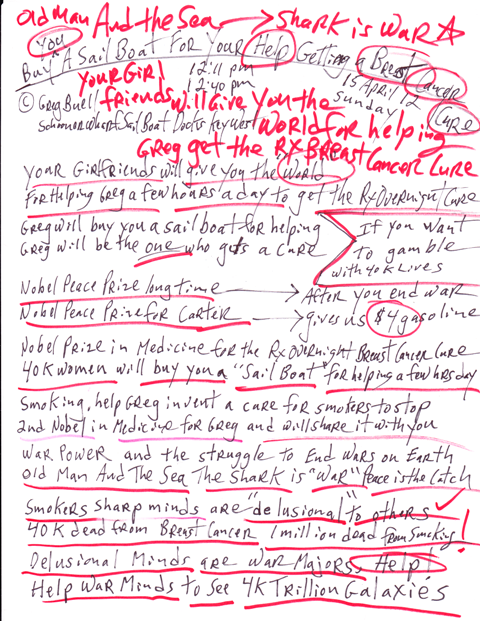 Old Man And the Sea → Shark is War ☆
You
Buy A Sail Boat For Your Help Getting a Breast Cancer
Your Girl 12:11 pm 15 April, 12 Cure
© Greg Buell friends 12:40 pm Sunday
will Give You the
Schooner Wharf Sail Boat Docks Key West World for helping
Greg get the Rx Breast Cancer Cure
Your Girlfriends will give you the "World"
For Helping Greg a few hours a day to get the Rx Overnight Cure
Greg will buy you a sail boat for helping
Greg will be the one who gets a cure
If you want
to gamble
with 40K Lives
Nobel Peace Prize long time → After you end war
Nobel Peace Prize for Carter → gives us $4 gasoline
Nobel Prize in Medicine for the Rx Overnight Breast Cancer Cure
40K women will buy you a "Sail Boat" for helping a few hrs day
Smoking, help Greg invent a cure for smokers to stop
2nd Nobel in Medicine for Greg and will share it with you
War Power and the struggle to End Wars on Earth
Old Man And The Sea The Shark is "War" Peace is the Catch
Smokers sharp minds are "delusional" to others ✓
40K dead from Breast Cancer 1 million dead from Smoking!
Delusional Minds are War Majors Help!
Help War Minds to See 4K Trillion Galaxies